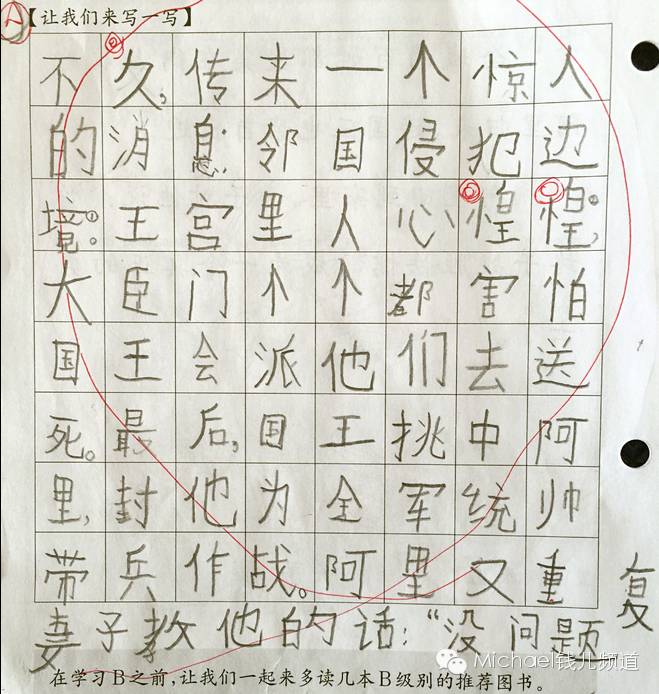 A【让我们来写一写】
不久,传来一个惊人
的消息邻国侵犯边
境。王宫里人心惶惶,
大臣门个个都害怕
国王会派他们去送
死。最后,国王挑中阿
里,封他为全军统帅
带兵作战。阿里又重复
妻子教他的话:“没问题
Michael钱儿频道
在学习B之前,让我们一起来多读几本B级别的推荐图书。